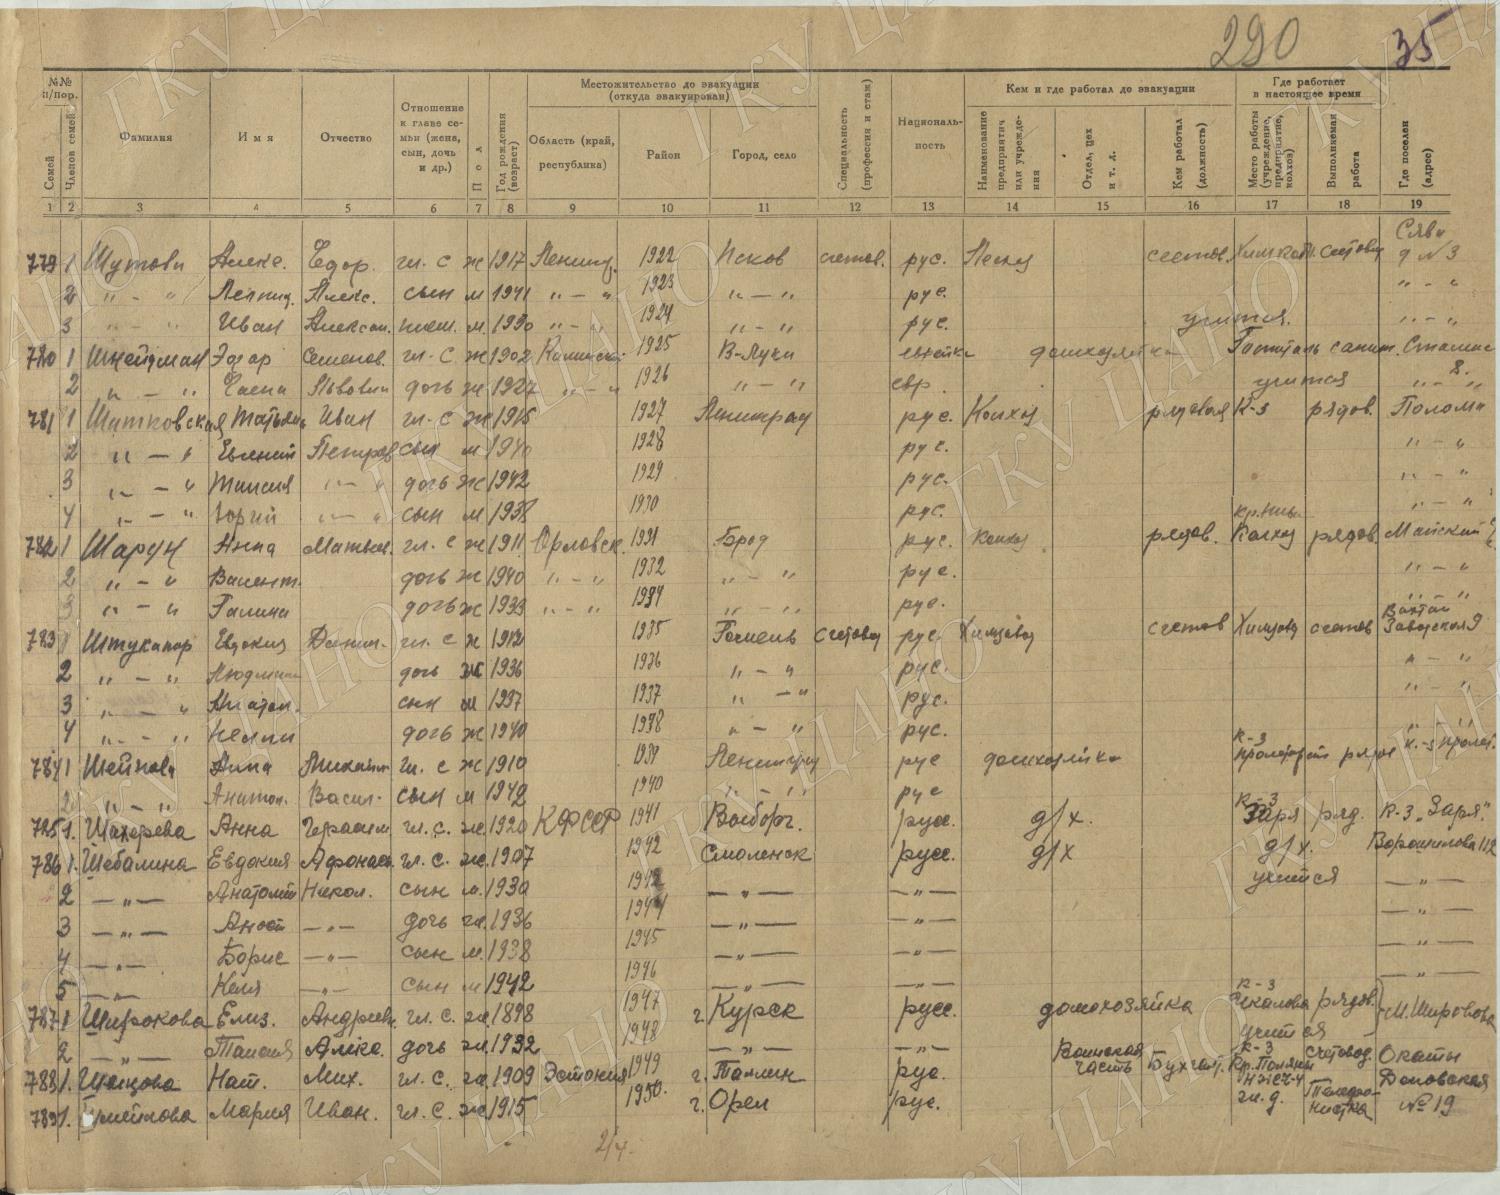 290 35
№№ п/пор.
Семей
Членов семей
Фамилия
Имя
Отчество
Отношение к главе семьи (жена, сын, дочь и др.)
Пол
Год рождения (возраст)
Местожительство до эвакуации (откуда эвакуирован)
Область (край, республика)
Район
Город, село
Специальность (профессия и стаж)
Националь-ность
Кем и где работал до эвакуации
Наименование предприятия или учреждения
Отдел, цех и т. д.
Кем работал (должность)
Где работает в настоящее время
Место работы (учреждение, предприятие, колхоз)
Выполняемая работа
Где поселен (адрес)
1 2 3 4 5 6 7 8 9 10 11 12 13 14 15 16 17 18 19
779 1 Алекс. Федор. гл. с ж 1917 Ленингр. 1922 Псков счетов. рус. счетов. д №3
2 " — " Леонид. Алекс. сын м 1941 " — " 1923 " — " рус. " — "
3 " — " Иван Алексан. плем. м. 1930 " — " 1924 " — " рус. учится. " — "
780 1 Шнейдман Эсфар Семенов. гл. с ж 1902 Калининс. 1925 В-Луки еврейка домхозяйка Госпиталь санит.
2 " — " Львовн дочь ж 1927 " — " 1926 " — " евр. учится " — "
781 1 Шитковская Татьяна Иван гл. с ж 1915 1927 Ленинград рус. Колхоз рядовая К-з рядов.
2 " — " Евгений Петров сын м 1940 1928 рус. " — "
3 " — " Таисия " — " дочь ж 1942 1929 рус. " — "
4 " — " Юрий " — " сын м 1938 1930 рус. " — "
782 1 Шарун Анна Матвее. гл. с ж 1911 Орловск. 1931 Брод рус. Колхоз рядов. Колхоз рядов. Майский
2 " — " Валент. дочь ж 1940 " — " 1932 " — " рус. " — "
3 " — " Галина дочь ж 1933 " — " 1934 " — " рус. " — "
783 1 Штукапор Евдокия Данил. гл. с ж 1912 1935 Гомель счетовод рус. Химзавод счетов Химзавод счетов Вахтан Заводская 9
2 " — " Людмила дочь ж 1936 1936 " — " рус. " — "
3 " — " Анатол. сын м 1937 1937 " — " рус. " — "
4 " — " Нелли дочь ж 1940 1938 " — " рус. " — "
784 1 Шейнова Анна Михайл гл. с ж 1910 1939 Ленинград рус домхозяйка К-з рядов
2 " — " Анатол. Васил. сын м 1942 1940 " — " рус
785 1. Шахерева Анна Герасим гл. с. ж. 1920 КФССР 1941 Выборг. русс. д/х. К-з Заря ряд. К-з „Заря"
786 1. Шебалина Евдокия Афонас. гл. с. ж. 1907 1942 Смоленск русс. д/х д/х. Ворошилова 112
2 — " — Анатолий Никол. сын м. 1930 1943 — " — — " — учится — " —
3 — " — — " — дочь ж. 1936 1944 — " — — " — — " —
4 — " — Борис — " — сын м. 1938 1945 — " — — " — — " —
5 — " — Келя — " — сын м 1942 1946 — " — — " — — " —
787 1 Широкова Елиз. Андреевн. гл. с. ж. 1898 1947 г. Курск русс. домохозяйка К-з Чкалова рядов.
2 — " — Таисия Алекс. дочь ж. 1932 1948 — " — — " — учится
788 1. Нат. Мих. гл. с. ж. 1909 Эстония 1949 г. Таллин рус. Воинская часть Бухгалт. К-з счетовод.
789 1. Мария Иван. гл. с. ж. 1915 1950. г. Орел рус. ж. д. Телефонистка №19
2/4.
ГКУ ЦАНО